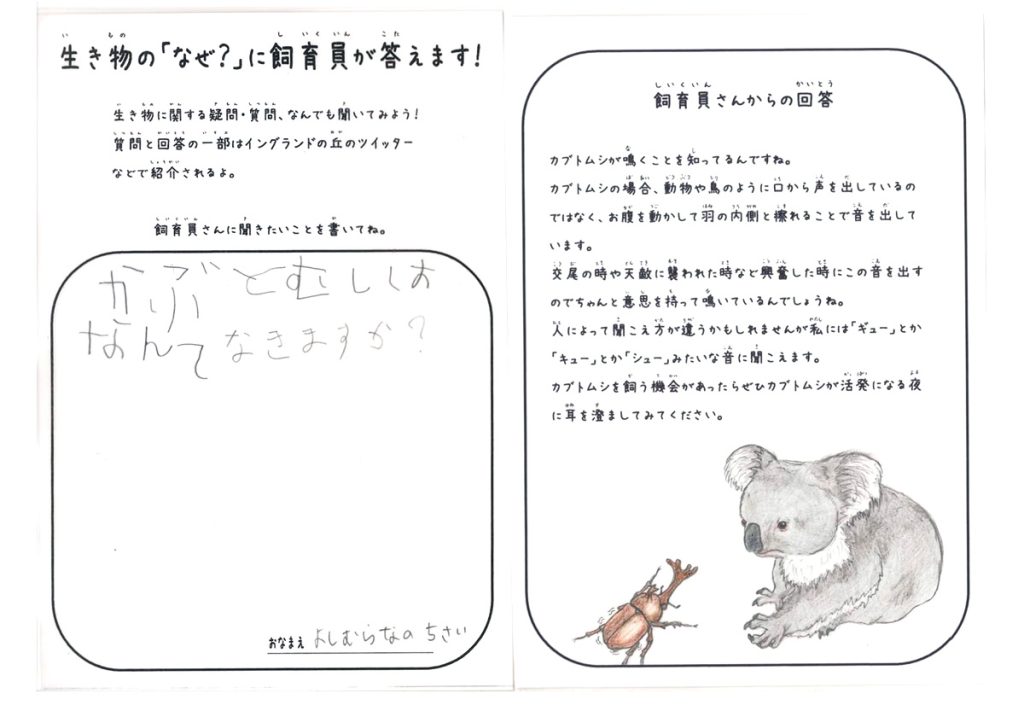 生き物の「なぜ?」に飼育員が答えます!
生き物に関する疑問・質問、なんでも聞いてみよう!
質問と回答の一部はイングランドの丘のツイッター
などで紹介されるよ。
飼育員さんに聞きたいことを書いてね。
かぶとむしは
なんてなきますか?
おなまえ よしむらなの ちさい
飼育員さんからの回答
カブトムシが鳴くことを知ってるんですね。
カブトムシの場合、動物や鳥のように口から声を出しているの
ではなく、お腹を動かして羽の内側と擦れることで音を出して
います。
交尾の時や天敵に襲われた時など興奮した時にこの音を出す
のでちゃんと意思を持って鳴いているんでしょうね。
人によって聞こえ方が違うかもしれませんが私には「ギュー」とか
「キュー」とか「シュー」みたいな音に聞こえます。
カブトムシを飼う機会があったらぜひカブトムシが活発になる夜
に耳を澄ましてみてください。